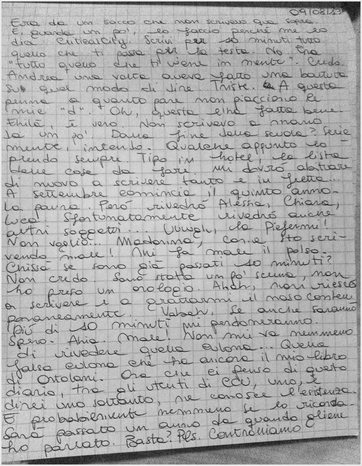 09/08/23
Era da un sacco che non scrivevo qua sopra.
E, quando un po', lo faccio perché me lo
dice CriticalCity. Scrivi per 10 minuti tutto
quello che ti passa per la testa. No, era
"tutto quello che ti viene in mente". Credo.
Andrea una volta aveva fatto una battuta
su quel modo di dire. Triste. A questa
penna a quanto pare non piacciono le
mie "d". Oh, questa è fatta bene.
Ehilà, è vero. Non scrivevo a mano
da un po'. Dalla fine della scuola? Seria
mente, intendo. Qualche appunto lo
prendo sempre. Tipo in hotel, la lista
delle cose da fare. Mi dovrò abituare
di nuovo a scrivere tanto e in fretta.
A settembre comincia il quinto anno.
Io paura. Però rivedrò Alessia, Chiara,
Luca! Sfortunatamente rivedrò anche
altri soggetti... Uuugh, la
Non voglio... Madonna, come sto scri-
vendo male! Mi fa male il polso.
Chissà se sono già passati 10 minuti?
Non credo. Sono stata un po' scema, non
ho preso un orologio. Ahah, non riesco
a scrivere e a grattarmi il naso contem
poraneamente. Vabeh. Se anche saranno
più di 10 minuti mi perdoneranno.
Spero. Ahia. Male! Non mi va nemmeno
di rivedere quella Quella
falsa che ha ancora il mio libro
di Ortolani. Ora che ci penso di questo
diario, tra gli utenti di CCU, uno, e
direi uno soltanto, ne conosce l'esistenza.
E probabilmente nemmeno se lo ricorda.
Sarà passato un anno da quando gliene
ho parlato. Basta? Pls. Controlliamo!